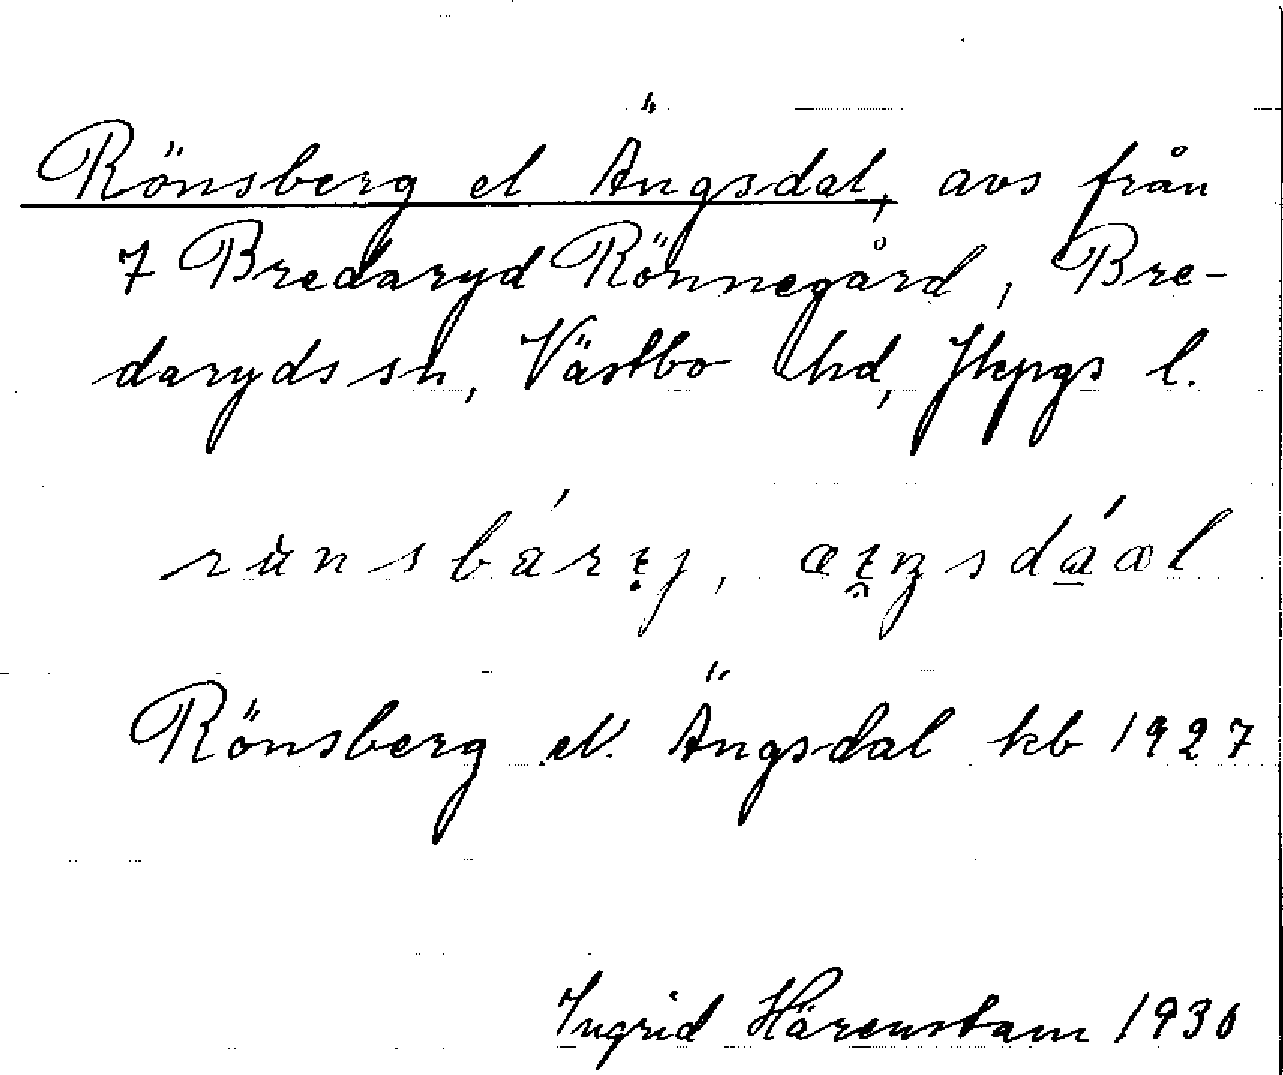 Rönsberg el Ängsdal, avs från
7 Bredaryd Rönnegård, Bre-
daryds sn, Västbo hd, Jkpgs l.
Rönsberg ell. Ängsdal kb 1927
Ingrid Härenstam 1930